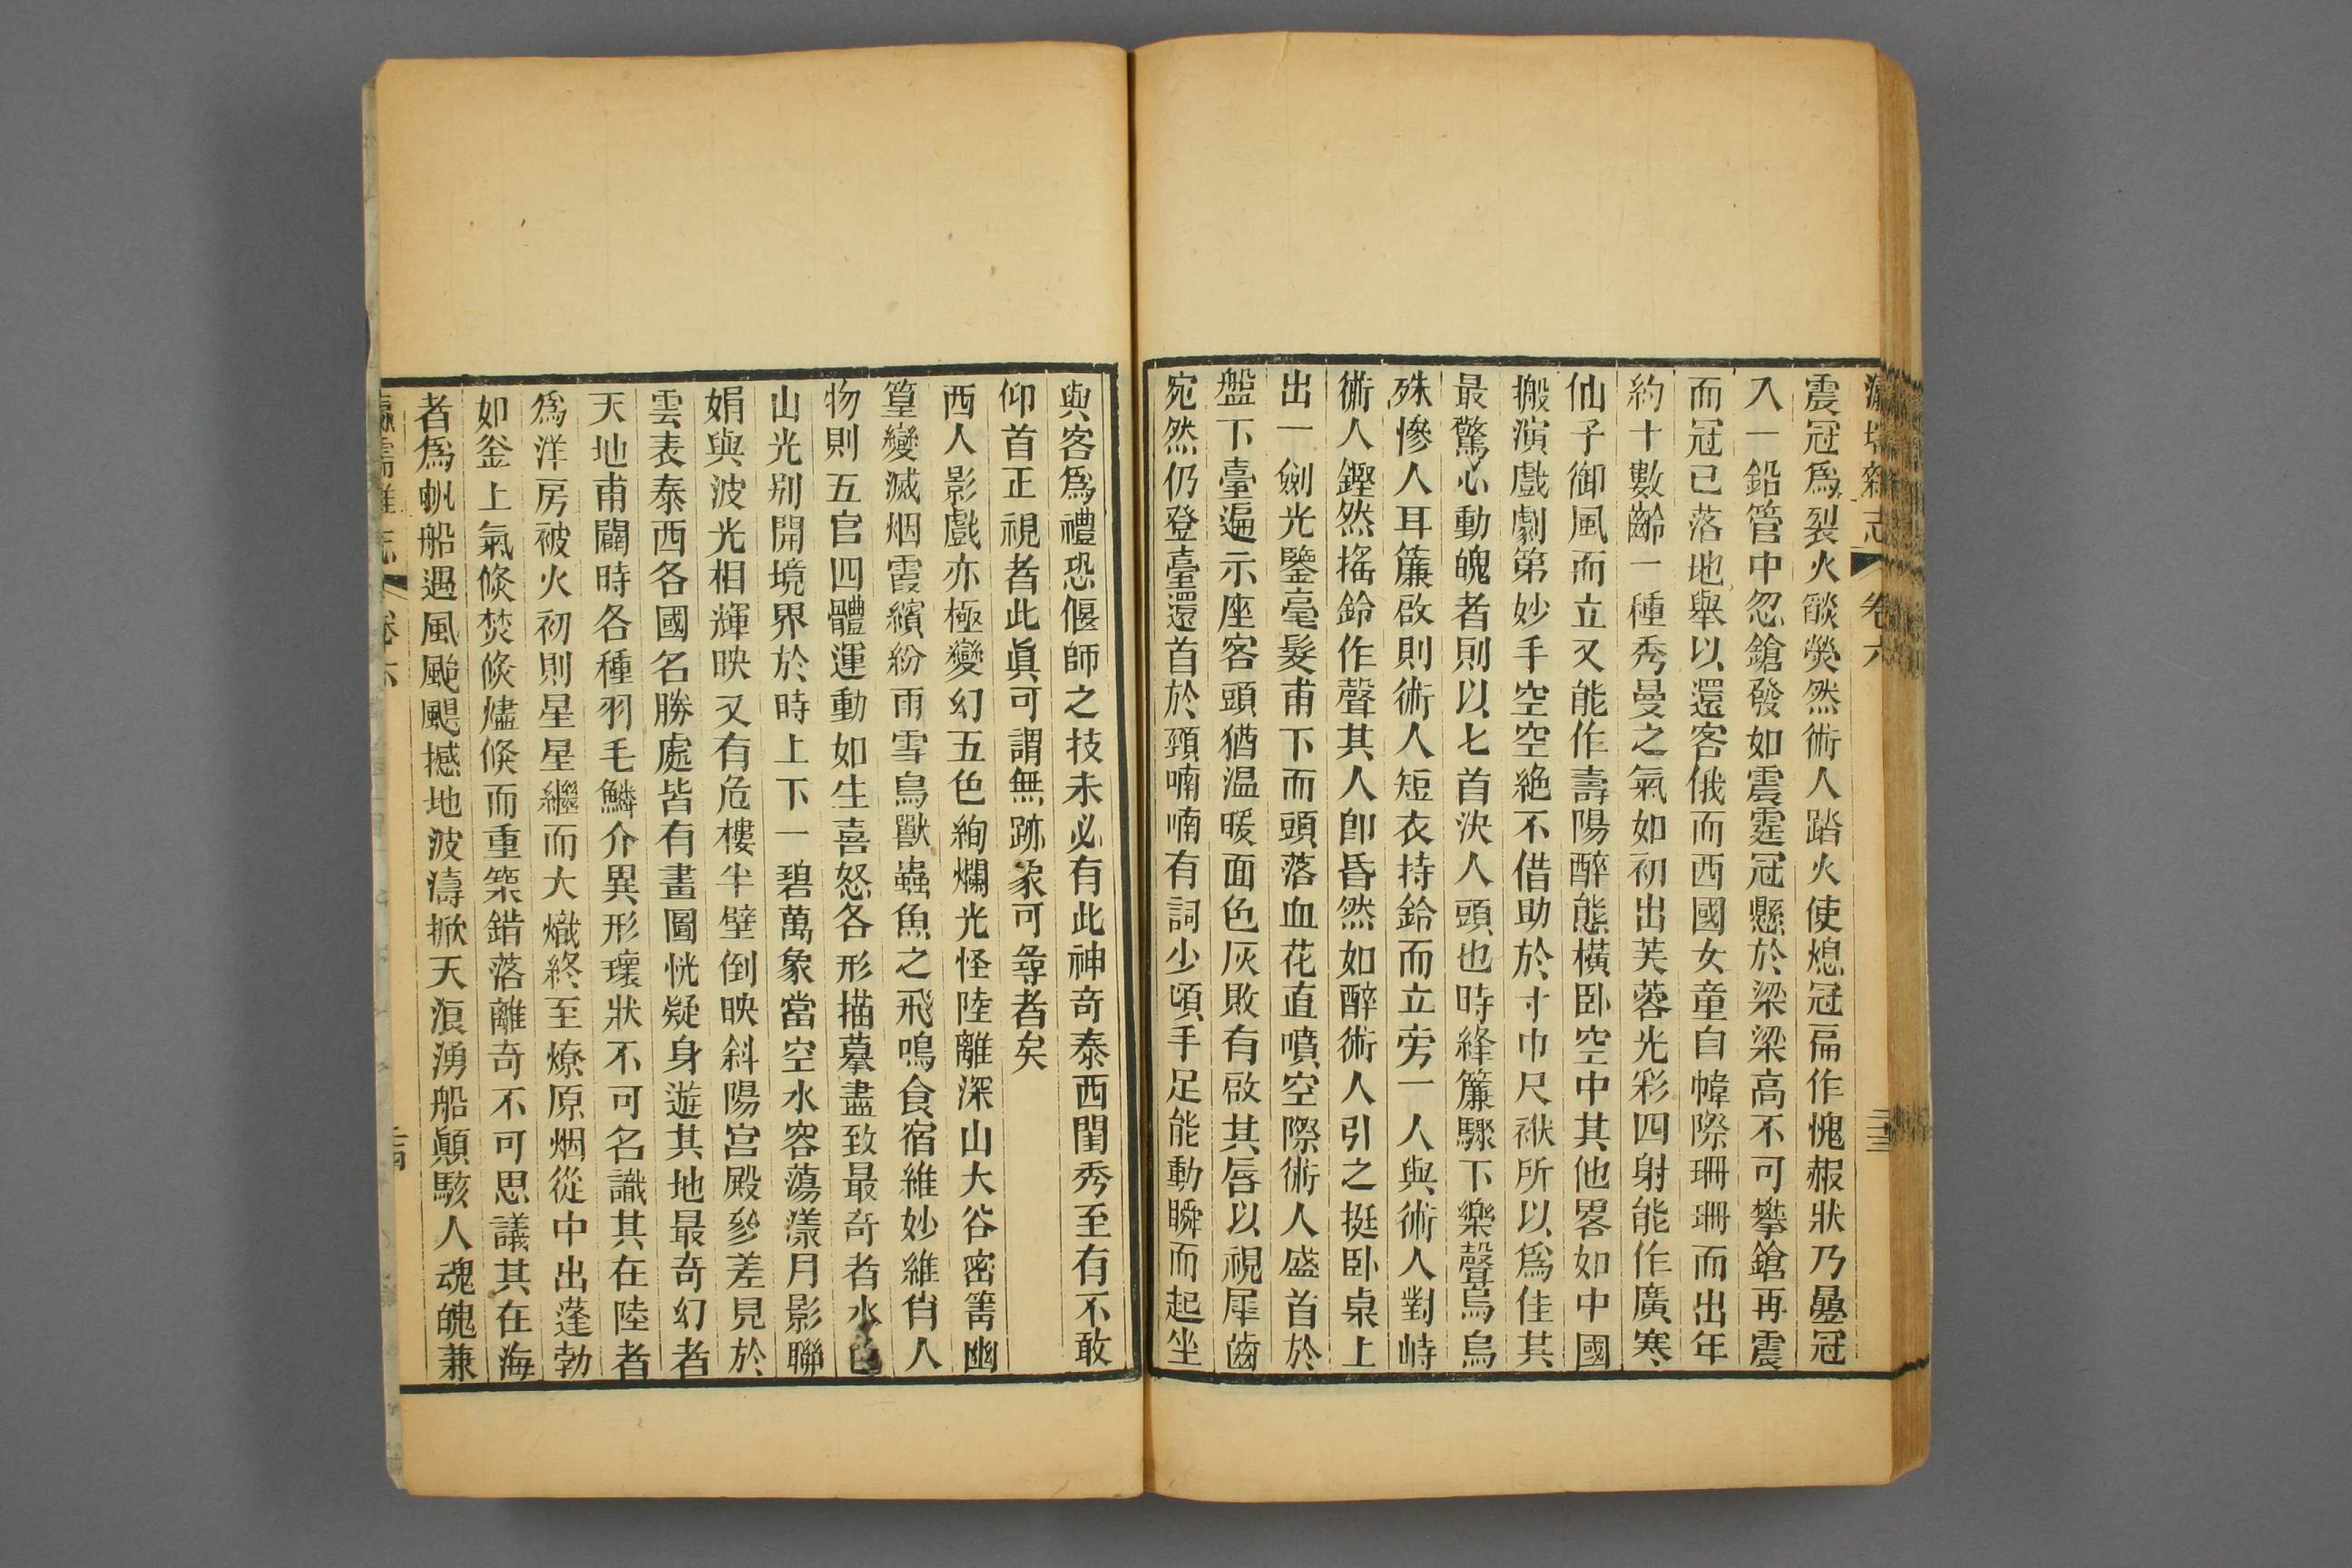 瀛壖雜志 卷六 二十三
震冠爲裂火燄熒然術人踏火使熄冠扁作愧赧狀乃曡冠
入一鉛管中忽鎗發如震霆冠懸於梁梁高不可攀鎗再震
而冠已落地舉以還客俄而西國女童自幃際珊珊而出年
約十數齡一種秀曼之氣如初出芙蓉光彩四射能作廣寒
仙子御風而立又能作壽陽醉態橫卧空中其他畧如中國
搬演戲劇第妙手空空絶不借助於寸巾尺袱所以爲佳其
最驚心動魄者則以匕首決人頭也時絳簾驟下樂聲烏烏
殊慘人耳簾啟則術人短衣持鈴而立旁一人與術人對峙
術人鏗然搖鈴作聲其人卽昏然如醉術人引之挺卧桌上
出一劍光鑒毫髮甫下而頭落血花直噴空際術人盛首於
盤下臺遍示座客頭猶温暖面色灰敗有啟其唇以視犀齒
宛然仍登臺還首於頸喃喃有詞少頃手足能動瞬而起坐
與客爲禮恐偃師之技未必有此神奇泰西閨秀至有不敢
仰首正視者此眞可謂無跡象可尋者矣
西人影戲亦極變幻五色絢爛光怪陸離深山大谷密箐幽
篁變滅烟霞繽紛雨雪鳥獸蟲魚之飛鳴食宿維妙維肖人
物則五官四體運動如生喜怒各形描摹盡致最奇者水色
山光别開境界於時上下一碧萬象當空水容蕩漾月影聯
娟與波光相輝映又有危樓半壁倒映斜陽宫殿參差見於
雲表泰西各國名勝處皆有畫圖恍疑身遊其地最奇幻者
天地甫闢時各種羽毛鱗介異形瓌狀不可名識其在陸者
爲洋房被火初則星星繼而大熾終至燎原烟從中出蓬勃
如釜上氣倐焚倐燼倐而重築錯落離奇不可思議其在海
者爲帆船遇風颱颶撼地波濤掀天浪湧船顚駭人魂魄兼
瀛壖雜志 卷六 二十四